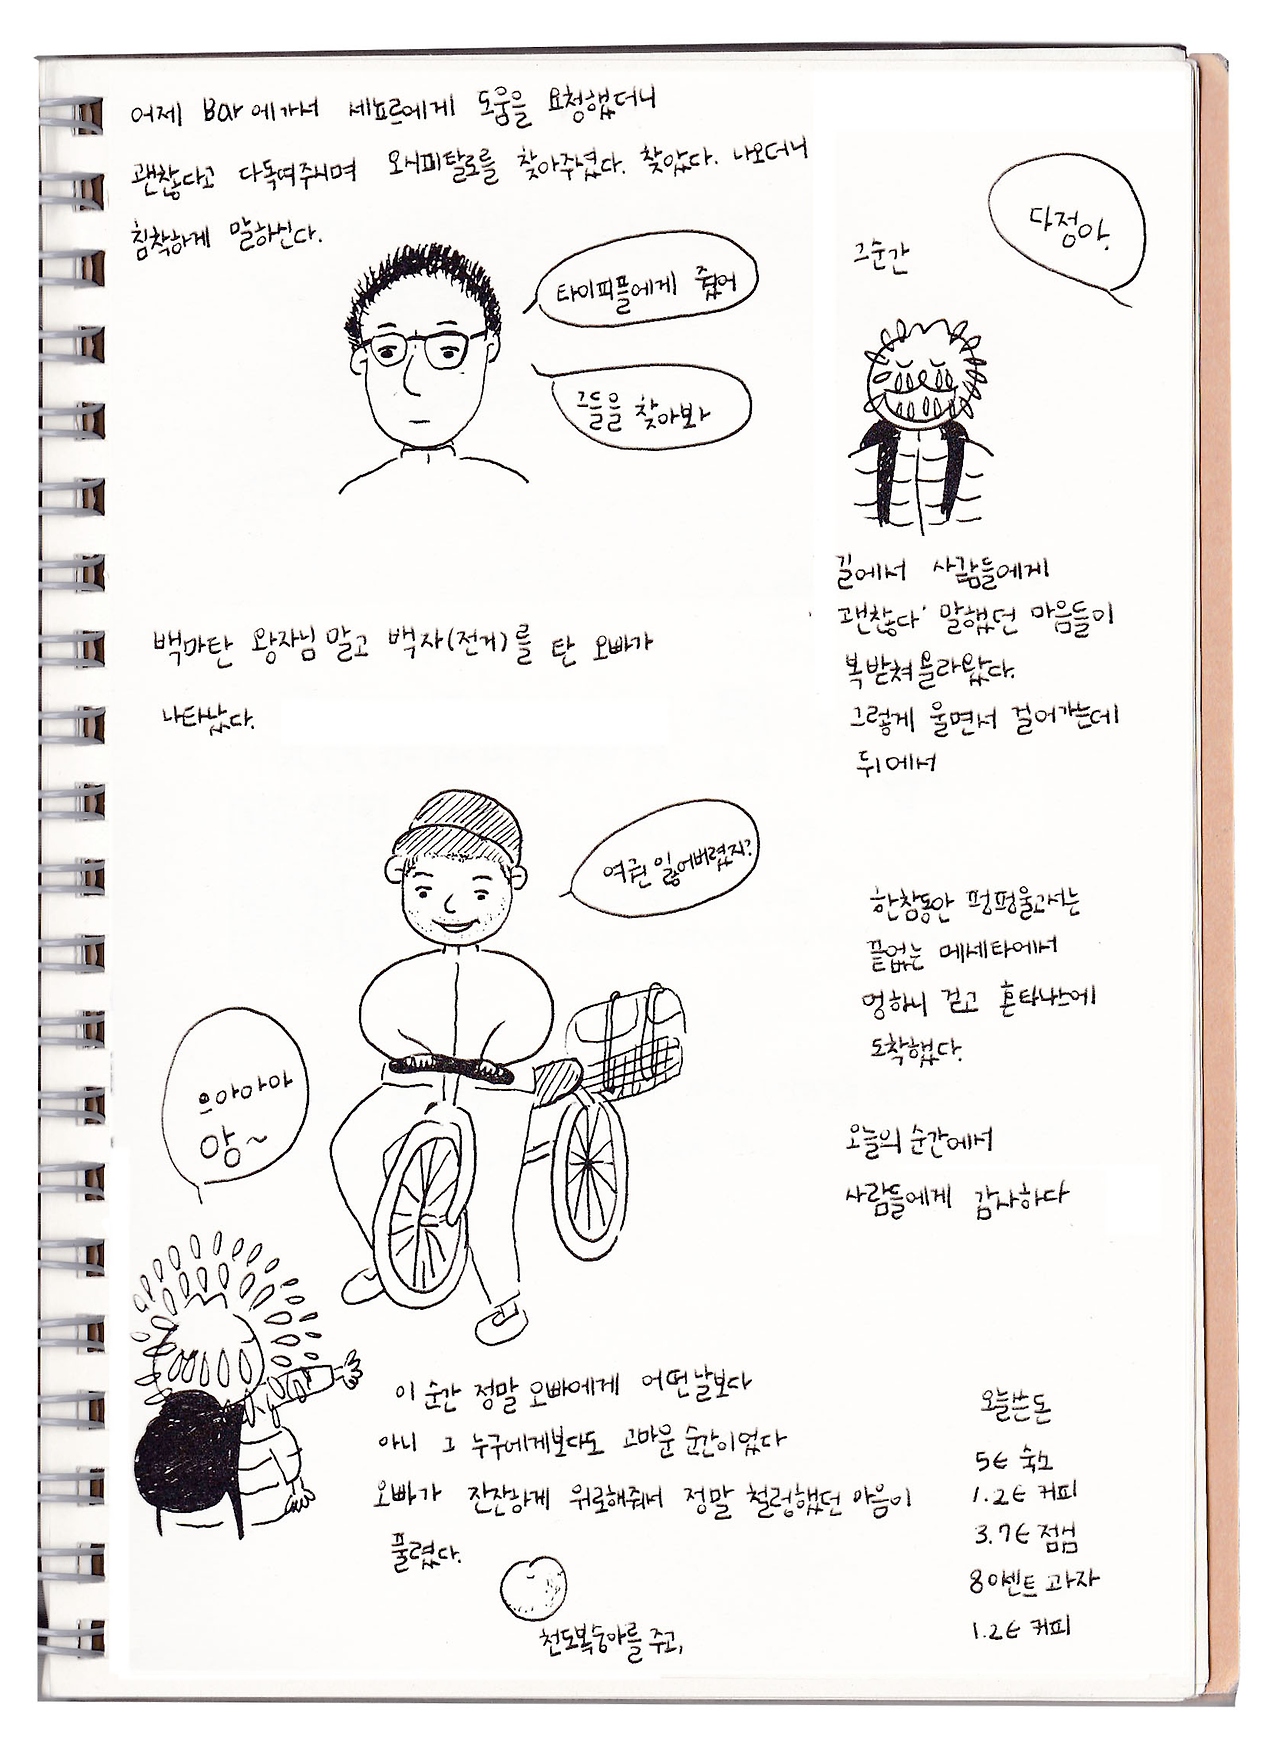 어제 Bar에가서 세뇨르에게 도움을 요청했더니
괜찮다고 다독여주시며 오시피탈로를 찾아주셨다. 찾았다. 나오더니
침착하게 말하신다.
타이피플에게 줬어
그들을 찾아봐
그순간
다정아.
길에서 사람들에게
괜찮다' 말했던 마음들이
복받쳐올라왔다.
그렇게 울면서 걸어가는데
뒤에서
백마탄 왕자님 말고 백자(전거)를 탄 오빠가
나타났다.
여권 잃어버렸지?
으아아아
앙~
이 순간 정말 오빠에게 어떤날보다
아니 그 누구에게보다도 고마운 순간이었다
오빠가 잔잔하게 위로해줘서 정말 철렁했던 마음이
풀렸다.
천도복숭아를 주고,
한참동안 펑펑울고서는
끝없는 메세타에서
멍하니 걷고 혼타나스에
도착했다.
오늘의 순간에서
사람들에게 감사하다
오늘쓴돈
5€ 숙소
1.2€ 커피
3.7€ 점심
80센트 과자
1.2€ 커피